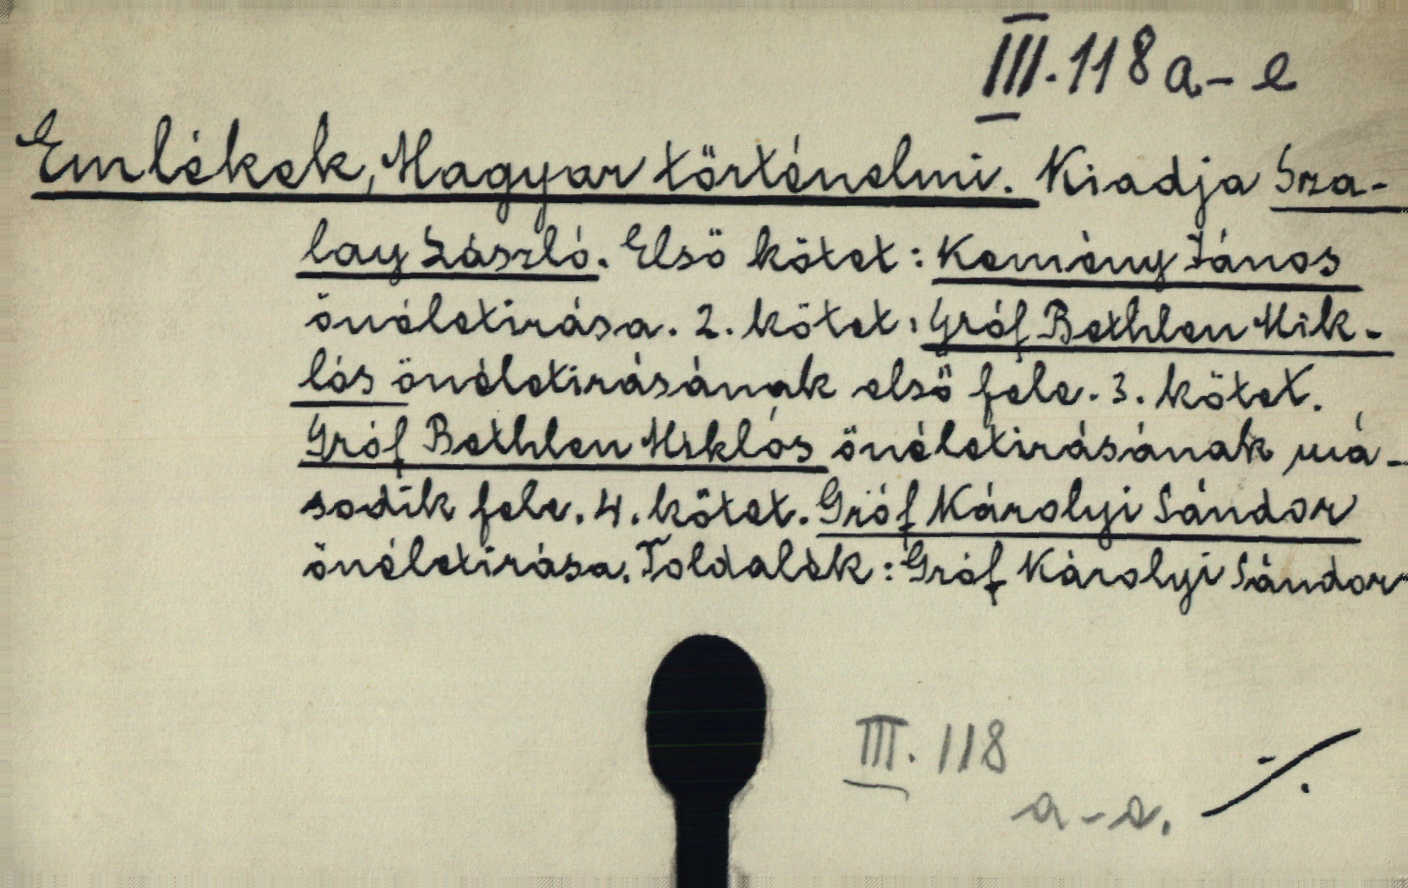 III. 118 a - e
Emlékek, Magyar történelmi. Kiadja Sza-
lay László. Első kötet: Kemény János
önéletirása. 2. kötet: Gróf Bethlen Mik-
lós önéletirásának első fele. 3. kötet.
Gróf Bethlen Miklós önéletirásának má-
sodik fele. 4. kötet. Gróf Károlyi Sándor
önéletirása. Toldalék: Gróf Károlyi Sándor
III. 118
a - e.
./.